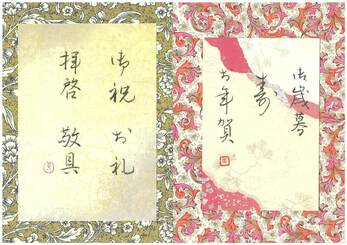 御祝 お礼
拝啓 敬具
御歳暮
寿
お年賀